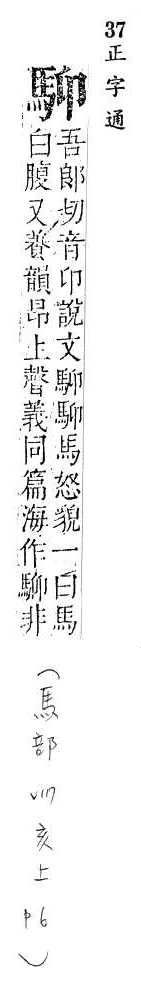 37正字通
䭹
吾郎切音卬說文䭹䭹馬怒貌一曰馬
白腹又養韻昂上聲義同篇海作非
(馬部 VIII 亥上 P6)